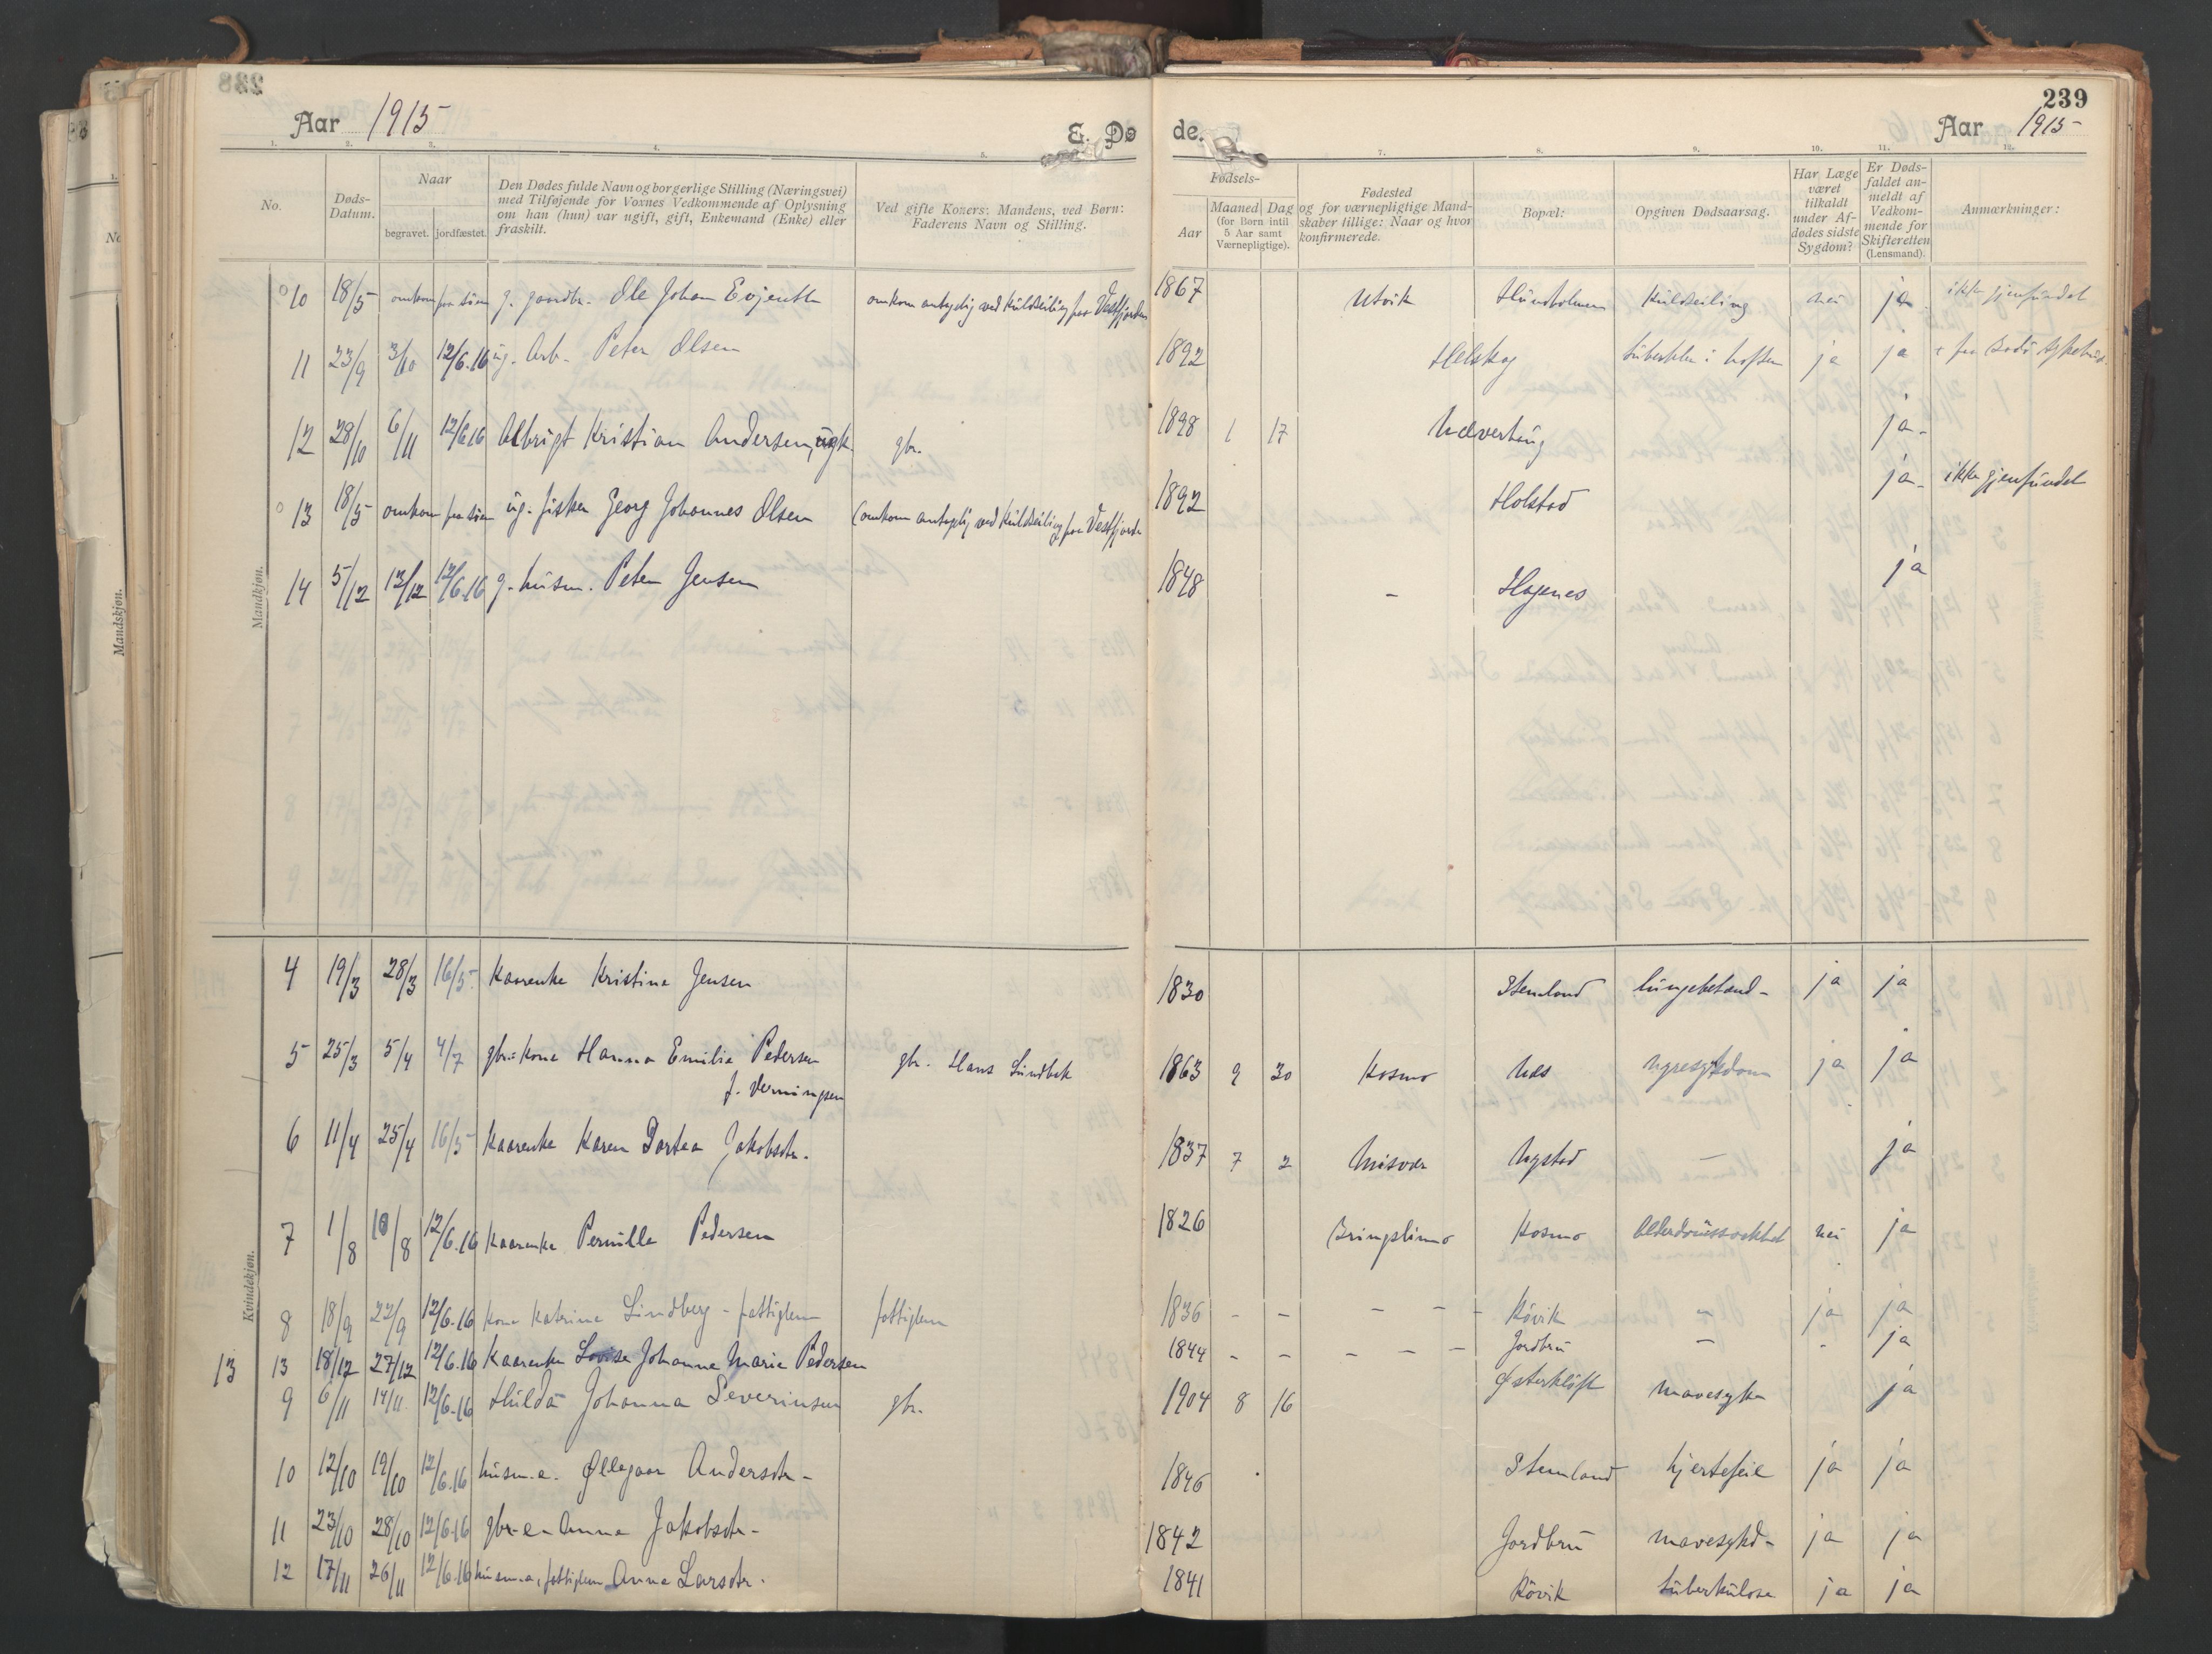 Aar 1915
E. Dø
de.
239
Aar 1915
1. 2. 3. 4. 5. 7. 8. 9. 10. 11. 12.
No.
Døds-
Datum.
Naar
begravet. jordfæstet.
Den Dødes fulde Navn og borgerlige Stilling (Næringsvei)
med Tilføjende for Voxnes Vedkommende af Oplysning
om han (hun) var ugift, gift, Enkemand (Enke) eller
fraskilt.
Ved gifte Koner: Mandens, ved Børn:
Faderens Navn og Stilling.
Fødsels-
Aar
Maaned Dag
(for Børn intil
5 Aar samt
Værnepligtige).
Fødested
og for værnepligtige Mand-
skaber tillige: Naar og hvor
konfirmerede.
Bopæl:
Opgiven Dødsaarsag.
Har Læge
været
tilkaldt
under Af-
dødes sidste
Sygdom?
Er Døds-
faldet an-
meldt af
Vedkom-
mende for
Skifteretten
(Lensmand).
Anmærkninger:
Mandkjøn.
10 18/5 omkom paa søen g. gaardbr. Ole Johan Evjenth omkom antagelig ved kuldseiling paa Vestfjorden 1867 Utvik Hundholmen kuldseiling nei ja ikke gjenfundet
11 23/9 3/10 12/6.16 ug. Arb. Peter Olsen 1892 Helskog tuberkler i hoften ja ja + paa Bodø sykehus.
12 28/10 6/11 12/6.16 Albrigt Kristian Andersen, ugk gbr. 1898 1 17 Nævertaug ja.
13 18/5 omkom paa søen ug. fisker Georg Johannes Olsen (omkom antagelig ved kuldseiling paa Vestfjorden 1892 Holstad ja. ikke gjenfundet
14 5/12 12/12 12/6.16 g. husm. Peter Jensen 1848 - Hogenes ja
Kvindekjøn.
4 19/3 28/3 16/5 Kaarenke Kristine Jensen 1830 Stemland lungebetænd- ja ja
5 25/3 5/4 4/7 gbr.kone Hanna Emilie Pedersen gbr. Hans Lundbak 1863 9 30 Kosmo Næs nyresykdom ja ja
f. Verningsen
6 11/4 25/4 16/5 Kaarenke Karen Dortea Jakobsdtr. 1837 7 2 Misvær Nystad - ja
7 1/8 10/8 12/6.16 Kaarenke Pernille Pedersen 1826 Bringslimo Kosmo Alderdomssvækkelse nei ja
8 18/9 22/9 12/6.16 Kone Katrine Lindberg - fattiglem fattiglem 1836 - - - - - Kövik - ja ja
13 13 18/12 27/12 12/6.16 Kaarenke Lovise Johanne Marie Pedersen 1844 - - - - - Jordbru - - ja
9 6/11 14/11 12/6.16 Hulda Johanna Severinsen gbr. 1904 8 16 Østerkløft mavesyke ja
10 12/10 19/10 12/6.16 husm.e. Ollegaar Andersdtr- 1846 Stemland hjertefeil ja ja
11 23/10 28/10 12/6.16 gbr-e- Anna Jakobsdtr- 1842 Jordbru mavesykd- ja ja
12 17/11 26/11 12/6.16 husm.e, fattiglem Anne Larsdtr. 1841 Kövik tuberkulose ja ja
Mandskjøn.